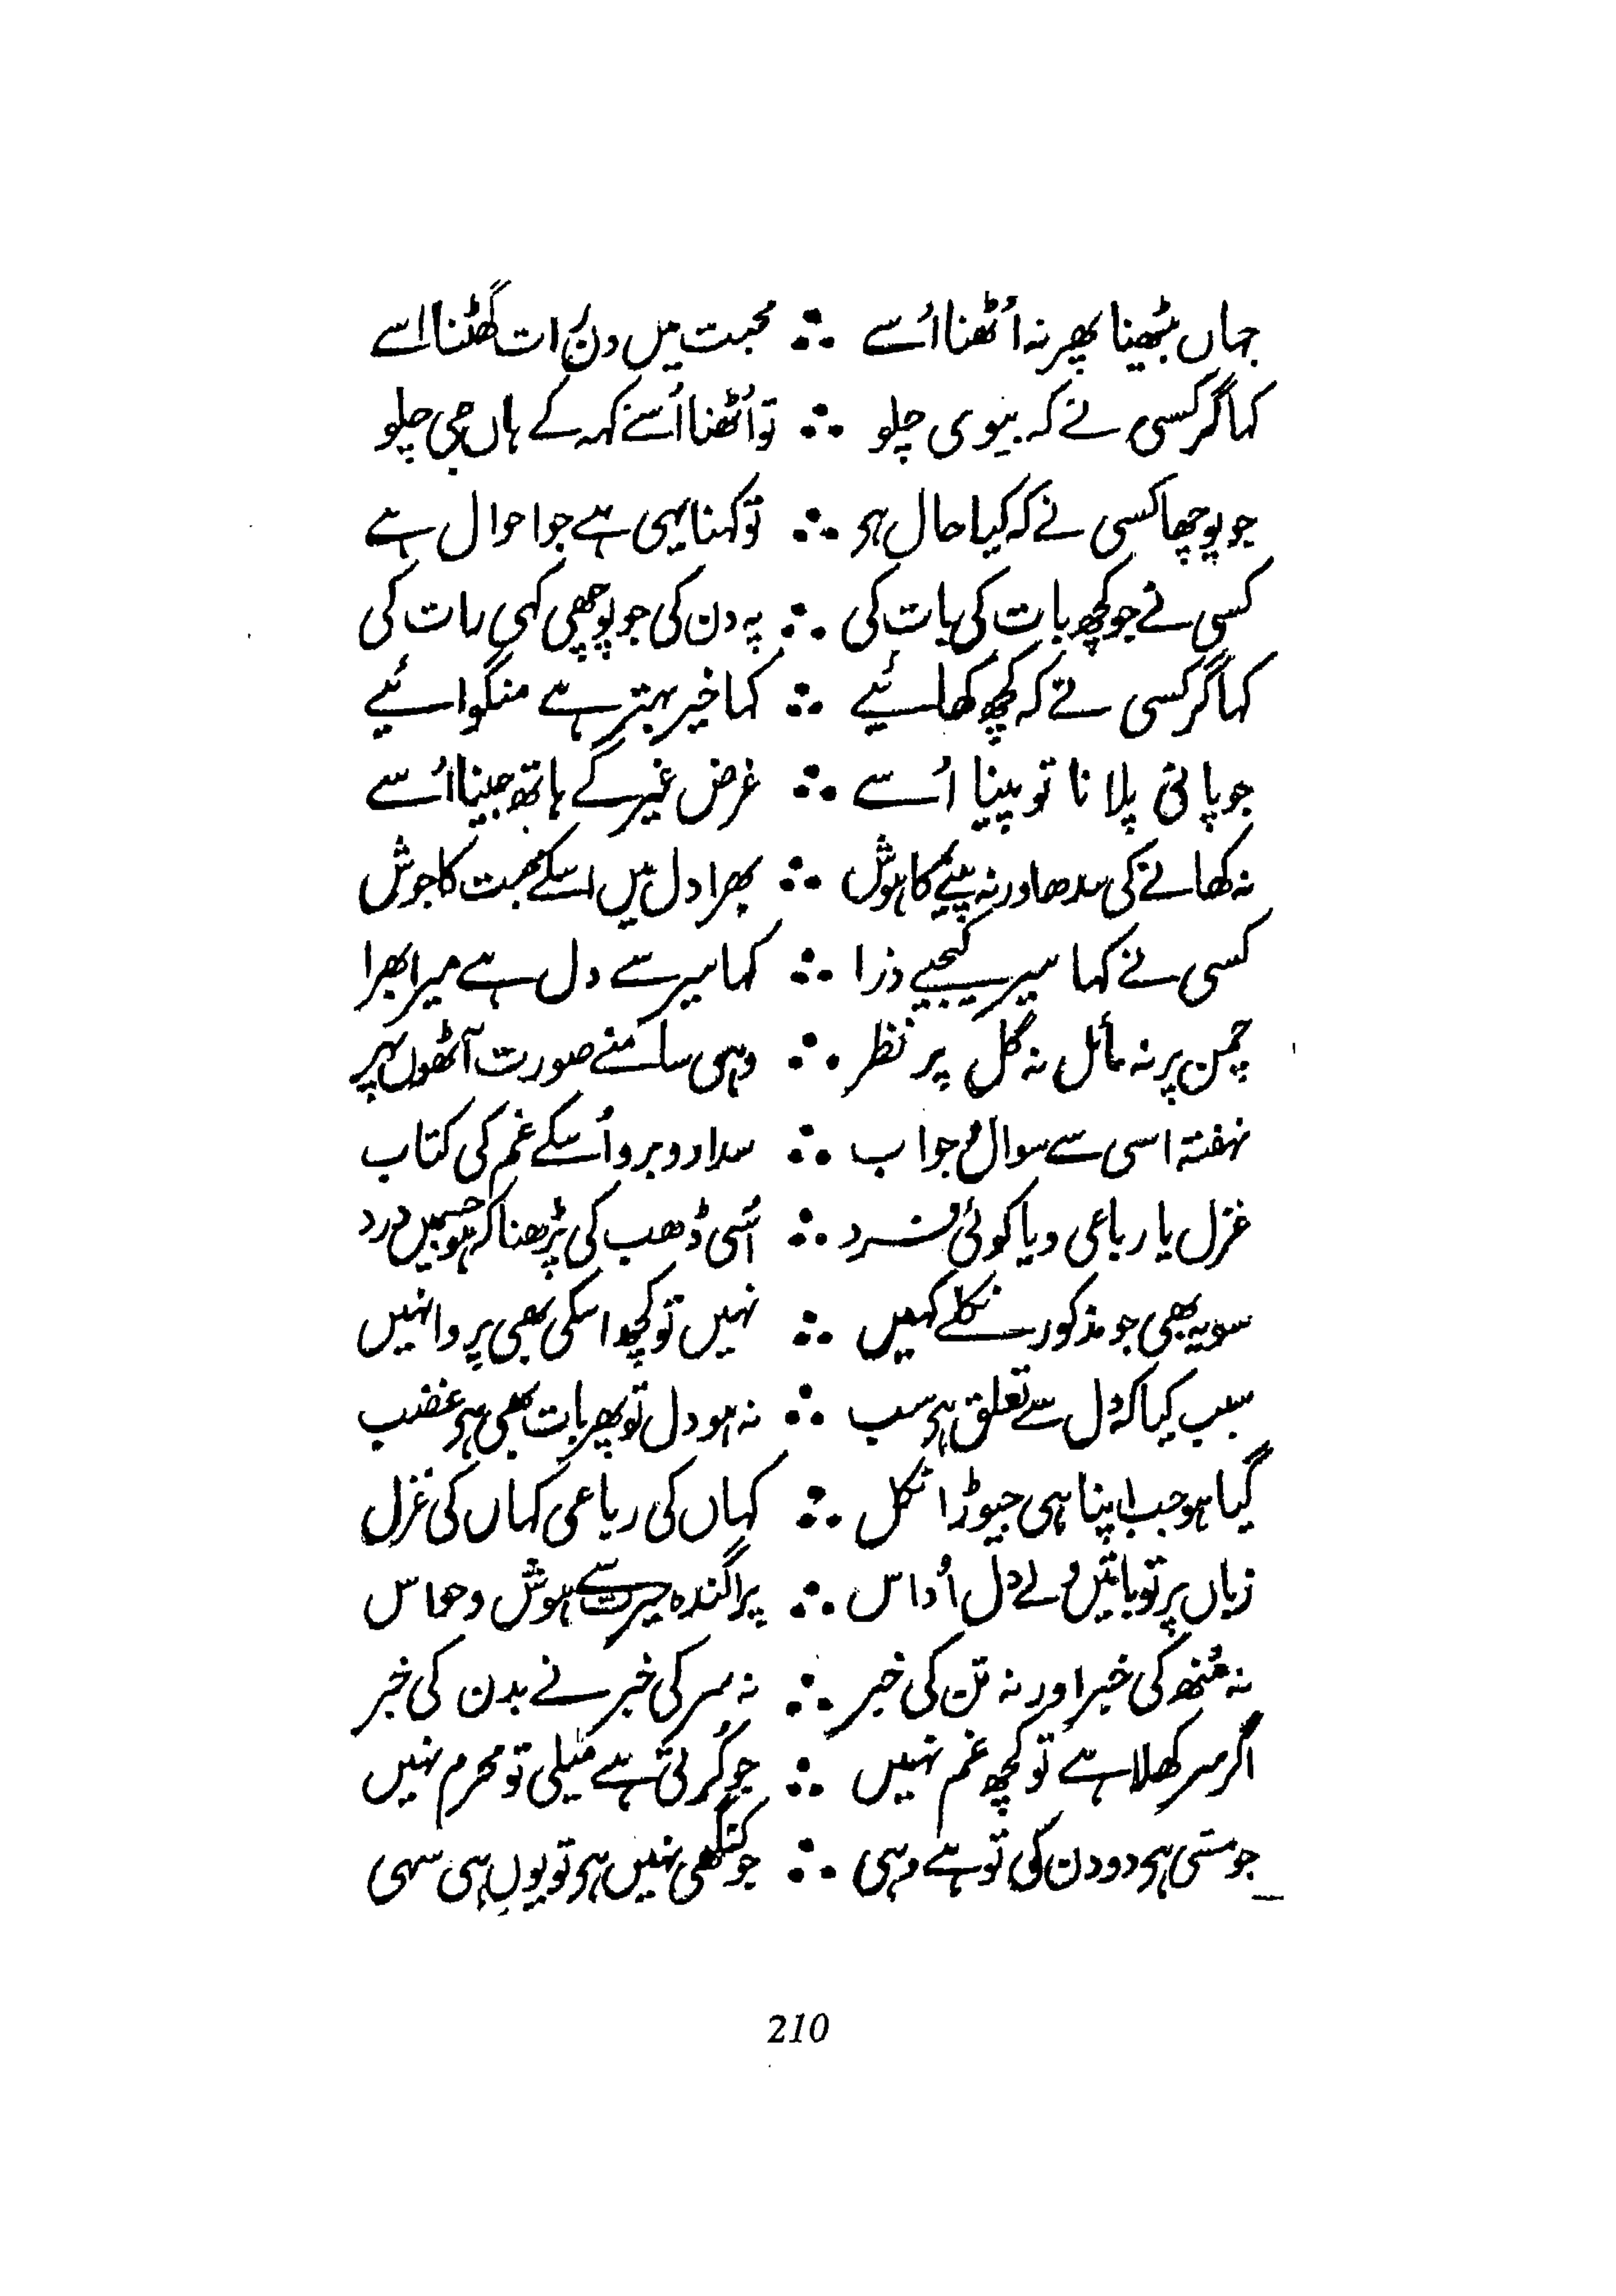 جہاں بیٹھنا پھر نہ اُٹھنا اُسے ∴ محبت میں دن رات گھٹنا اسے
کہا گر کسی نے کہ بیوی چلو ∴ تو اُٹھنا اُسے کہہ کے ہاں جی چلو
جو پوچھا کسی نے کہ کیا حال ہی ∴ تو کہنا یہی ہے جو احوال ہے
کسی نے جو کچھ بات کی بات کی ∴ پہ دن کی جو پوچھی کہی رات کی
کہا گر کسی نے کہ کچھ کھائیے ∴ کہا خیر بہتر ہے منگوائیے
جو پانی پلانا تو پینا اُسے ∴ غرض غیر کے ہاتھ جینا اُسے
نہ کھانے کی سدھ اور نہ پینے کا ہوش ∴ بھرا دل میں اسکے محبت کا جوش
کسی نے کہا سیر کیجیے ذرا ∴ کہا سیر سے دل ہے میرا بھرا
چمن پر نہ مائل نہ گل پر نظر ∴ وہی سامنے صورت آٹھوں پہر
نہفتہ اسی سے سوال و جواب ∴ سدا روبرو اُسکے غم کی کتاب
غزل یا رباعی و یا کوئی فرد ∴ اُسی ڈھب کی پڑھنا کہ ہو جسمیں درد
سو یہ بھی جو مذکور نکلے کہیں ∴ نہیں تو کچھ اسکی بھی پروا نہیں
سبب کیا کہ دل سے تعلق ہی سب ∴ نہ ہو دل تو پھر بات بھی ہی غضب
گیا ہو جب اپنا ہی جیوڑا نکل ∴ کہاں کی رباعی کہاں کی غزل
زباں پر تو باتیں ولے دل اُداس ∴ پراگندہ حیرت سے ہوش و حواس
نہ مُنھ کی خبر اور نہ تن کی خبر ∴ نہ سر کی خبر نے بدن کی خبر
اگر سر کھلا ہے تو کچھ غم نہیں ∴ جو کُرتی ہے میلی تو محرم نہیں
جو مسّی ہی دو دن کی تو ہے وہی ∴ جو کنگھی نہیں ہی تو یوں ہی سہی
210